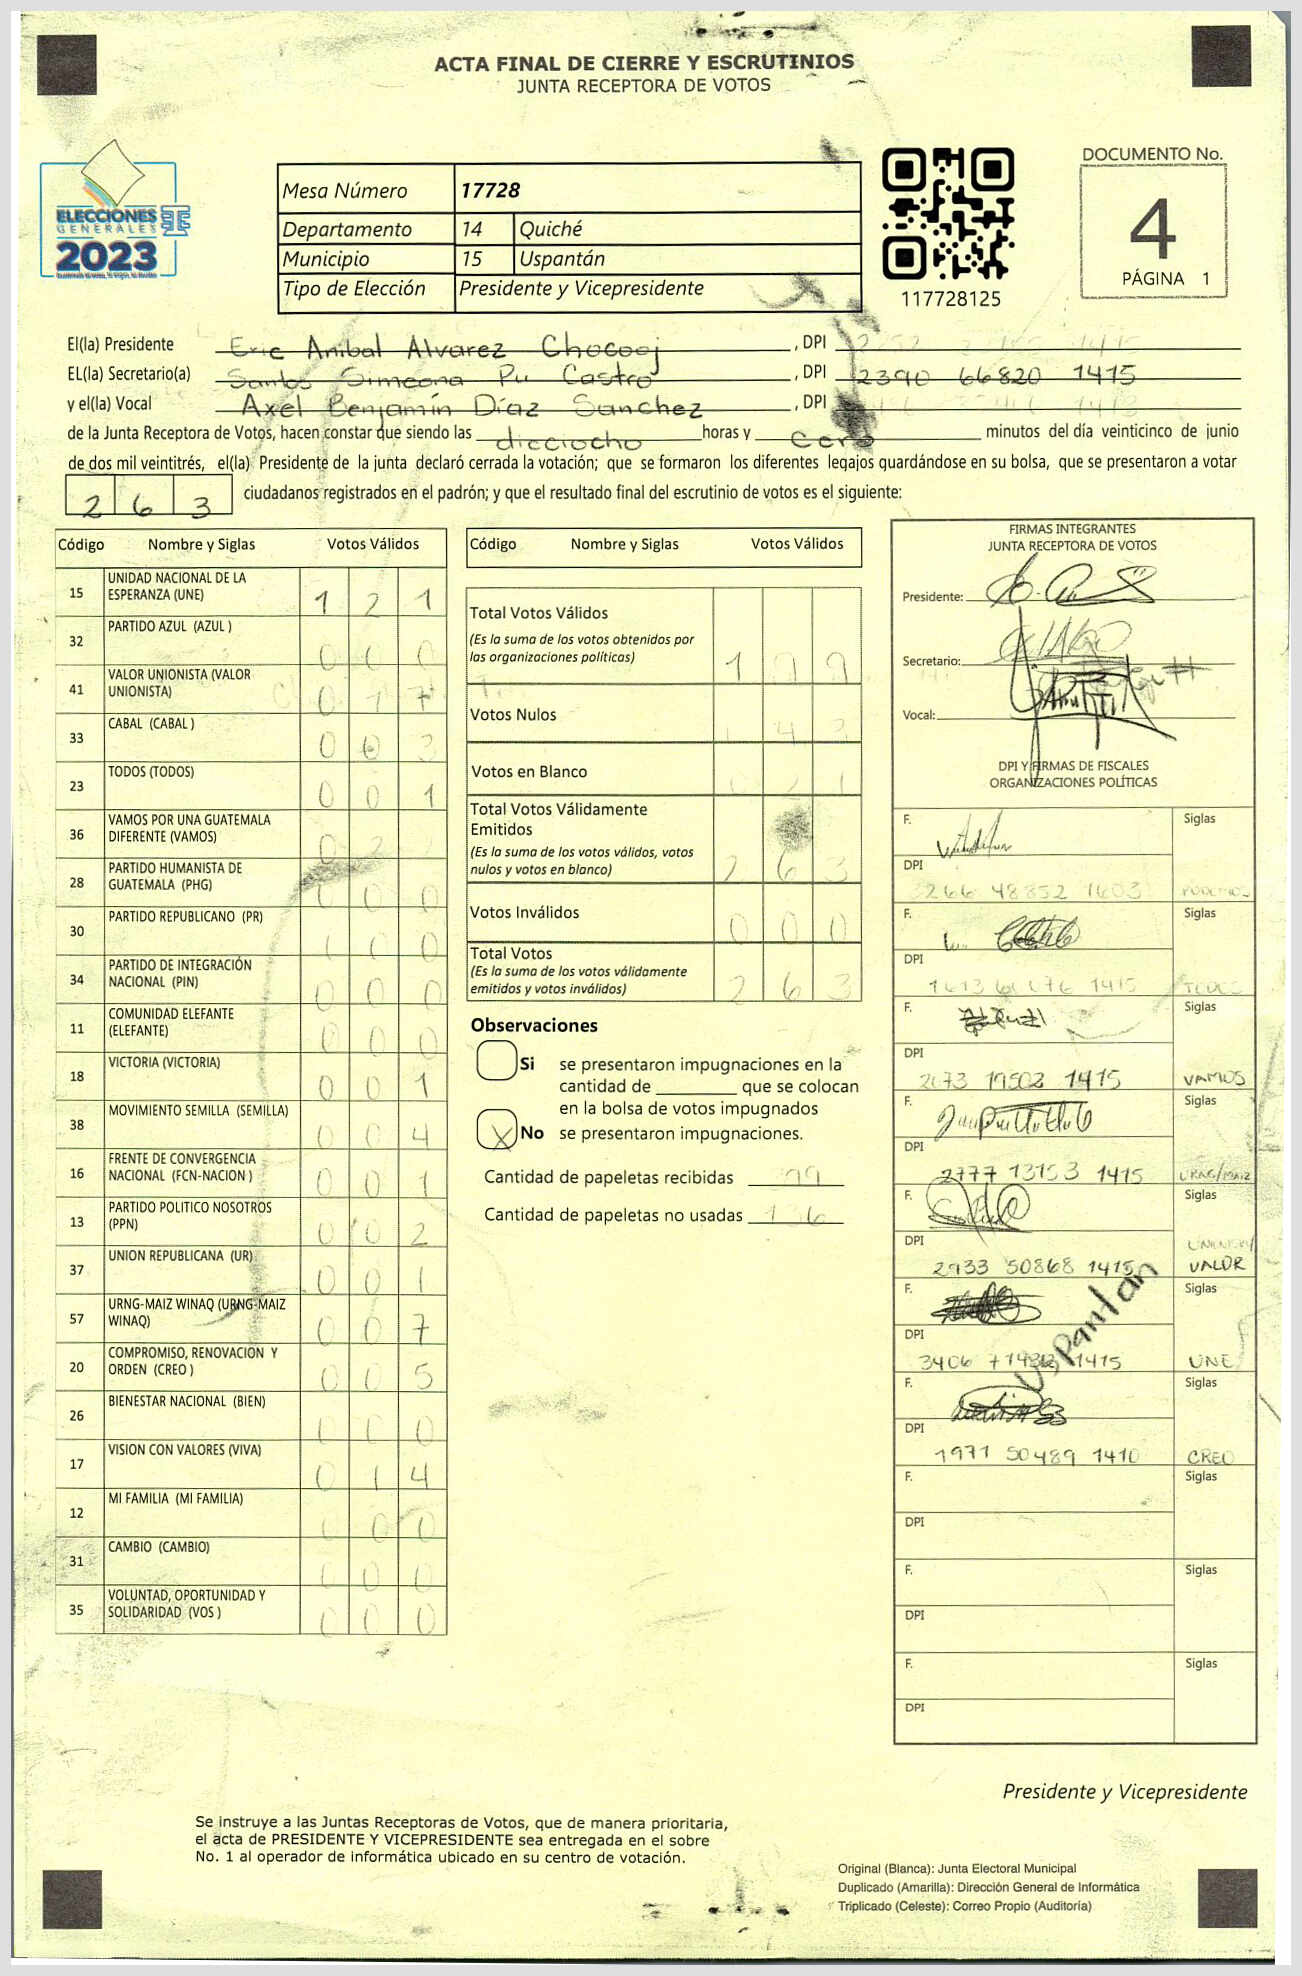 ACTA FINAL DE CIERRE Y ESCRUTINIOS
JUNTA RECEPTORA DE VOTOS
ELECCIONES
GENERALES
2023
Mesa Número 17728
Departamento 14 Quiché
Municipio 15 Uspantán
Tipo de Elección Presidente y Vicepresidente
117728125
DOCUMENTO No.
4
PÁGINA 1
El(la) Presidente Eric Anibal Alvarez Chocooj, DPI
EL(la) Secretario(a) Santos Simeona Pu Castro, DPI 2390 66820 1415
y el(la) Vocal Axel Benjamín Díaz Sanchez, DPI
de la Junta Receptora de Votos, hacen constar que siendo las dieciocho horas y cero minutos del día veinticinco de junio
de dos mil veintitrés, el(la) Presidente de la junta declaró cerrada la votación; que se formaron los diferentes legajos quardándose en su bolsa, que se presentaron a votar
263 ciudadanos registrados en el padrón; y que el resultado final del escrutinio de votos es el siguiente:
Código Nombre y Siglas Votos Válidos
15 UNIDAD NACIONAL DE LA ESPERANZA (UNE) 1 2 1
32 PARTIDO AZUL (AZUL ) 0 0 0
41 VALOR UNIONISTA (VALOR UNIONISTA) 0 1 7
33 CABAL (CABAL ) 0 0 3
23 TODOS (TODOS) 0 0 1
36 VAMOS POR UNA GUATEMALA DIFERENTE (VAMOS) 0 2
28 PARTIDO HUMANISTA DE GUATEMALA (PHG) 0 0 0
30 PARTIDO REPUBLICANO (PR) 0 0 0
34 PARTIDO DE INTEGRACIÓN NACIONAL (PIN) 0 0 0
11 COMUNIDAD ELEFANTE (ELEFANTE) 0 0 0
18 VICTORIA (VICTORIA) 0 0 1
38 MOVIMIENTO SEMILLA (SEMILLA) 0 0 4
16 FRENTE DE CONVERGENCIA NACIONAL (FCN-NACION ) 0 0 1
13 PARTIDO POLITICO NOSOTROS (PPN) 0 0 2
37 UNION REPUBLICANA (UR) 0 0 1
57 URNG-MAIZ WINAQ (URNG-MAIZ WINAQ) 0 0 7
20 COMPROMISO, RENOVACION Y ORDEN (CREO ) 0 0 5
26 BIENESTAR NACIONAL (BIEN) 0 0 0
17 VISION CON VALORES (VIVA) 0 1 4
12 MI FAMILIA (MI FAMILIA) 0 0 0
31 CAMBIO (CAMBIO) 0 0 0
35 VOLUNTAD, OPORTUNIDAD Y SOLIDARIDAD (VOS ) 0 0 0
Código Nombre y Siglas Votos Válidos
Total Votos Válidos
(Es la suma de los votos obtenidos por
las organizaciones políticas) 1 9 9
Votos Nulos 4 3
Votos en Blanco 2 1
Total Votos Válidamente
Emitidos
(Es la suma de los votos válidos, votos
nulos y votos en blanco) 2 6 3
Votos Inválidos 0 0 0
Total Votos
(Es la suma de los votos válidamente
emitidos y votos inválidos) 2 6 3
Observaciones
Si se presentaron impugnaciones en la
cantidad de ________ que se colocan
en la bolsa de votos impugnados
X No se presentaron impugnaciones.
Cantidad de papeletas recibidas
Cantidad de papeletas no usadas 136
FIRMAS INTEGRANTES
JUNTA RECEPTORA DE VOTOS
Presidente:
Secretario:
Vocal:
DPI Y FIRMAS DE FISCALES
ORGANIZACIONES POLÍTICAS
F. Siglas
DPI
3266 48852 1603 PODEMOS
F. Siglas
DPI
1415 TODOS
F. Siglas
DPI
2673 19502 1415 VAMOS
F. Siglas
DPI
2777 13153 1415 URNG/MAIZ
F. Siglas
DPI
2933 50868 1415 VALOR
F. Siglas
DPI
3406 1415 UNE
Uspantan
F. Siglas
DPI
1971 50489 1410 CREO
F. Siglas
DPI
F. Siglas
DPI
F. Siglas
DPI
Presidente y Vicepresidente
Se instruye a las Juntas Receptoras de Votos, que de manera prioritaria,
el acta de PRESIDENTE Y VICEPRESIDENTE sea entregada en el sobre
No. 1 al operador de informática ubicado en su centro de votación.
Original (Blanca): Junta Electoral Municipal
Duplicado (Amarilla): Dirección General de Informática
Triplicado (Celeste): Correo Propio (Auditoría)